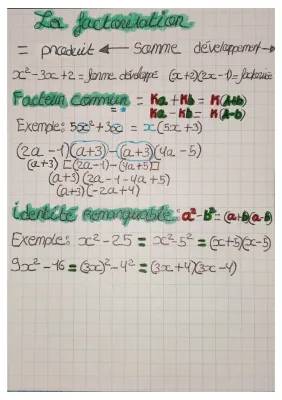 La factorisation
= produit ← somme développement →
x²-3x+2 = forme développé (x+2)(2x-1) = factorisée
Facteur commun = Ka + Kb = K(a+b)
Ka - Kb = K(a-b)
Exemple: 5x²+3x = x(5x+3)
(2a-1)(a+3)-(a+3)(4a-5)
(a+3)[(2a-1)-(4a+5)]
(a+3)(2a-1-4a+5)
(a+3)(-2a+4)
identité remarquable: a²-b²=(a+b)(a-b)
Exemple: x²-25 = x²-5² = (x+5)(x-5)
9x²-16 = (3x)²-4² = (3x+4)(3x-4)